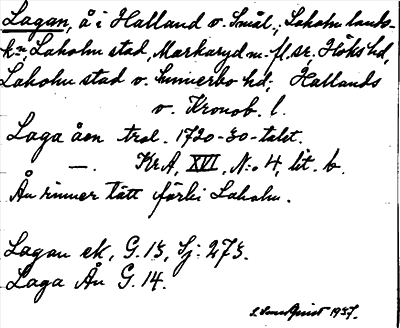 Lagan, å i Halland o. Smål.; Laholm lands-
kn, Laholm stad, Markaryd m. fl. sk, Höks hd,
Laholm stad o. Sunnerbo hd; Hallands
o. Kronob. l.
Laga åen trol. 1720-30-talet.
—. KrA, XVI, N:o 4, lit. b.
Ån rinner tätt förbi Laholm.
Lagan ek, G. 13, Sj: 273.
Laga Ån G. 14.
1937.